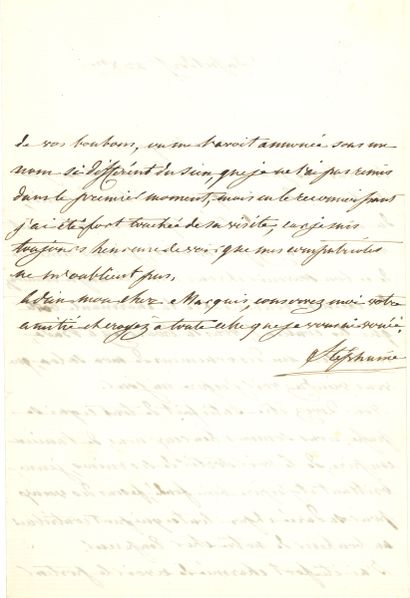 de vos bonbons, on me l'avoit annoncée sous un
nom si différent du sien, que je ne l'ai pas remis
dans le premier moment, mais en le reconnoissant
j'ai été fort touchée de sa visite, car je suis
toujours heureuse de voir que mes compatriotes
ne m'oublient pas.
Adieu mon cher Marquis, conservez moi votre
amitié et croyez à toute celle que je vous ai vouée.
Stéphanie